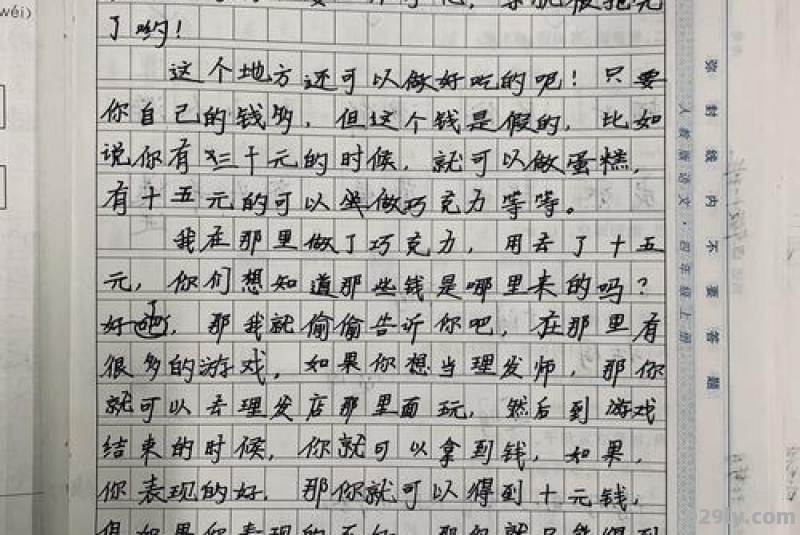 wéi)
了哟！
这个地方还可以做好吃的呢！只要
你自己的钱多，但这个钱是假的，比如
说你有三十元的时候，就可以做蛋糕，
有十五元的可以做巧克力等等。
我在那里做了巧克力，用去了十五
元，你们想知道那些钱是哪里来的吗？
好吧，那我就偷偷告诉你吧，在那里有
很多的游戏，如果你想当理发师，那你
就可以去理发店那里面玩，然后到游戏
结束的时候，你就可以拿到钱，如果，
你表现的好，那你就可以得到十元钱，
但如果你表现的不好，那你就只能得到
弥封线内不要答题
人教版语文·四年级上册
29ly.com